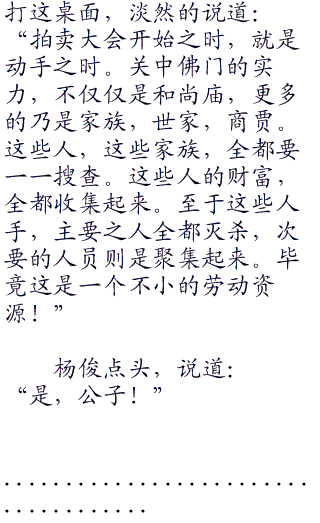 打这桌面，淡然的说道：
“拍卖大会开始之时，就是
动手之时。关中佛门的实
力，不仅仅是和尚庙，更多
的乃是家族，世家，商贾。
这些人，这些家族，全都要
一一搜查。这些人的财富，
全都收集起来。至于这些人
手，主要之人全都灭杀，次
要的人员则是聚集起来。毕
竟这是一个不小的劳动资
源！”
杨俊点头，说道：
“是，公子！”
.........................
............